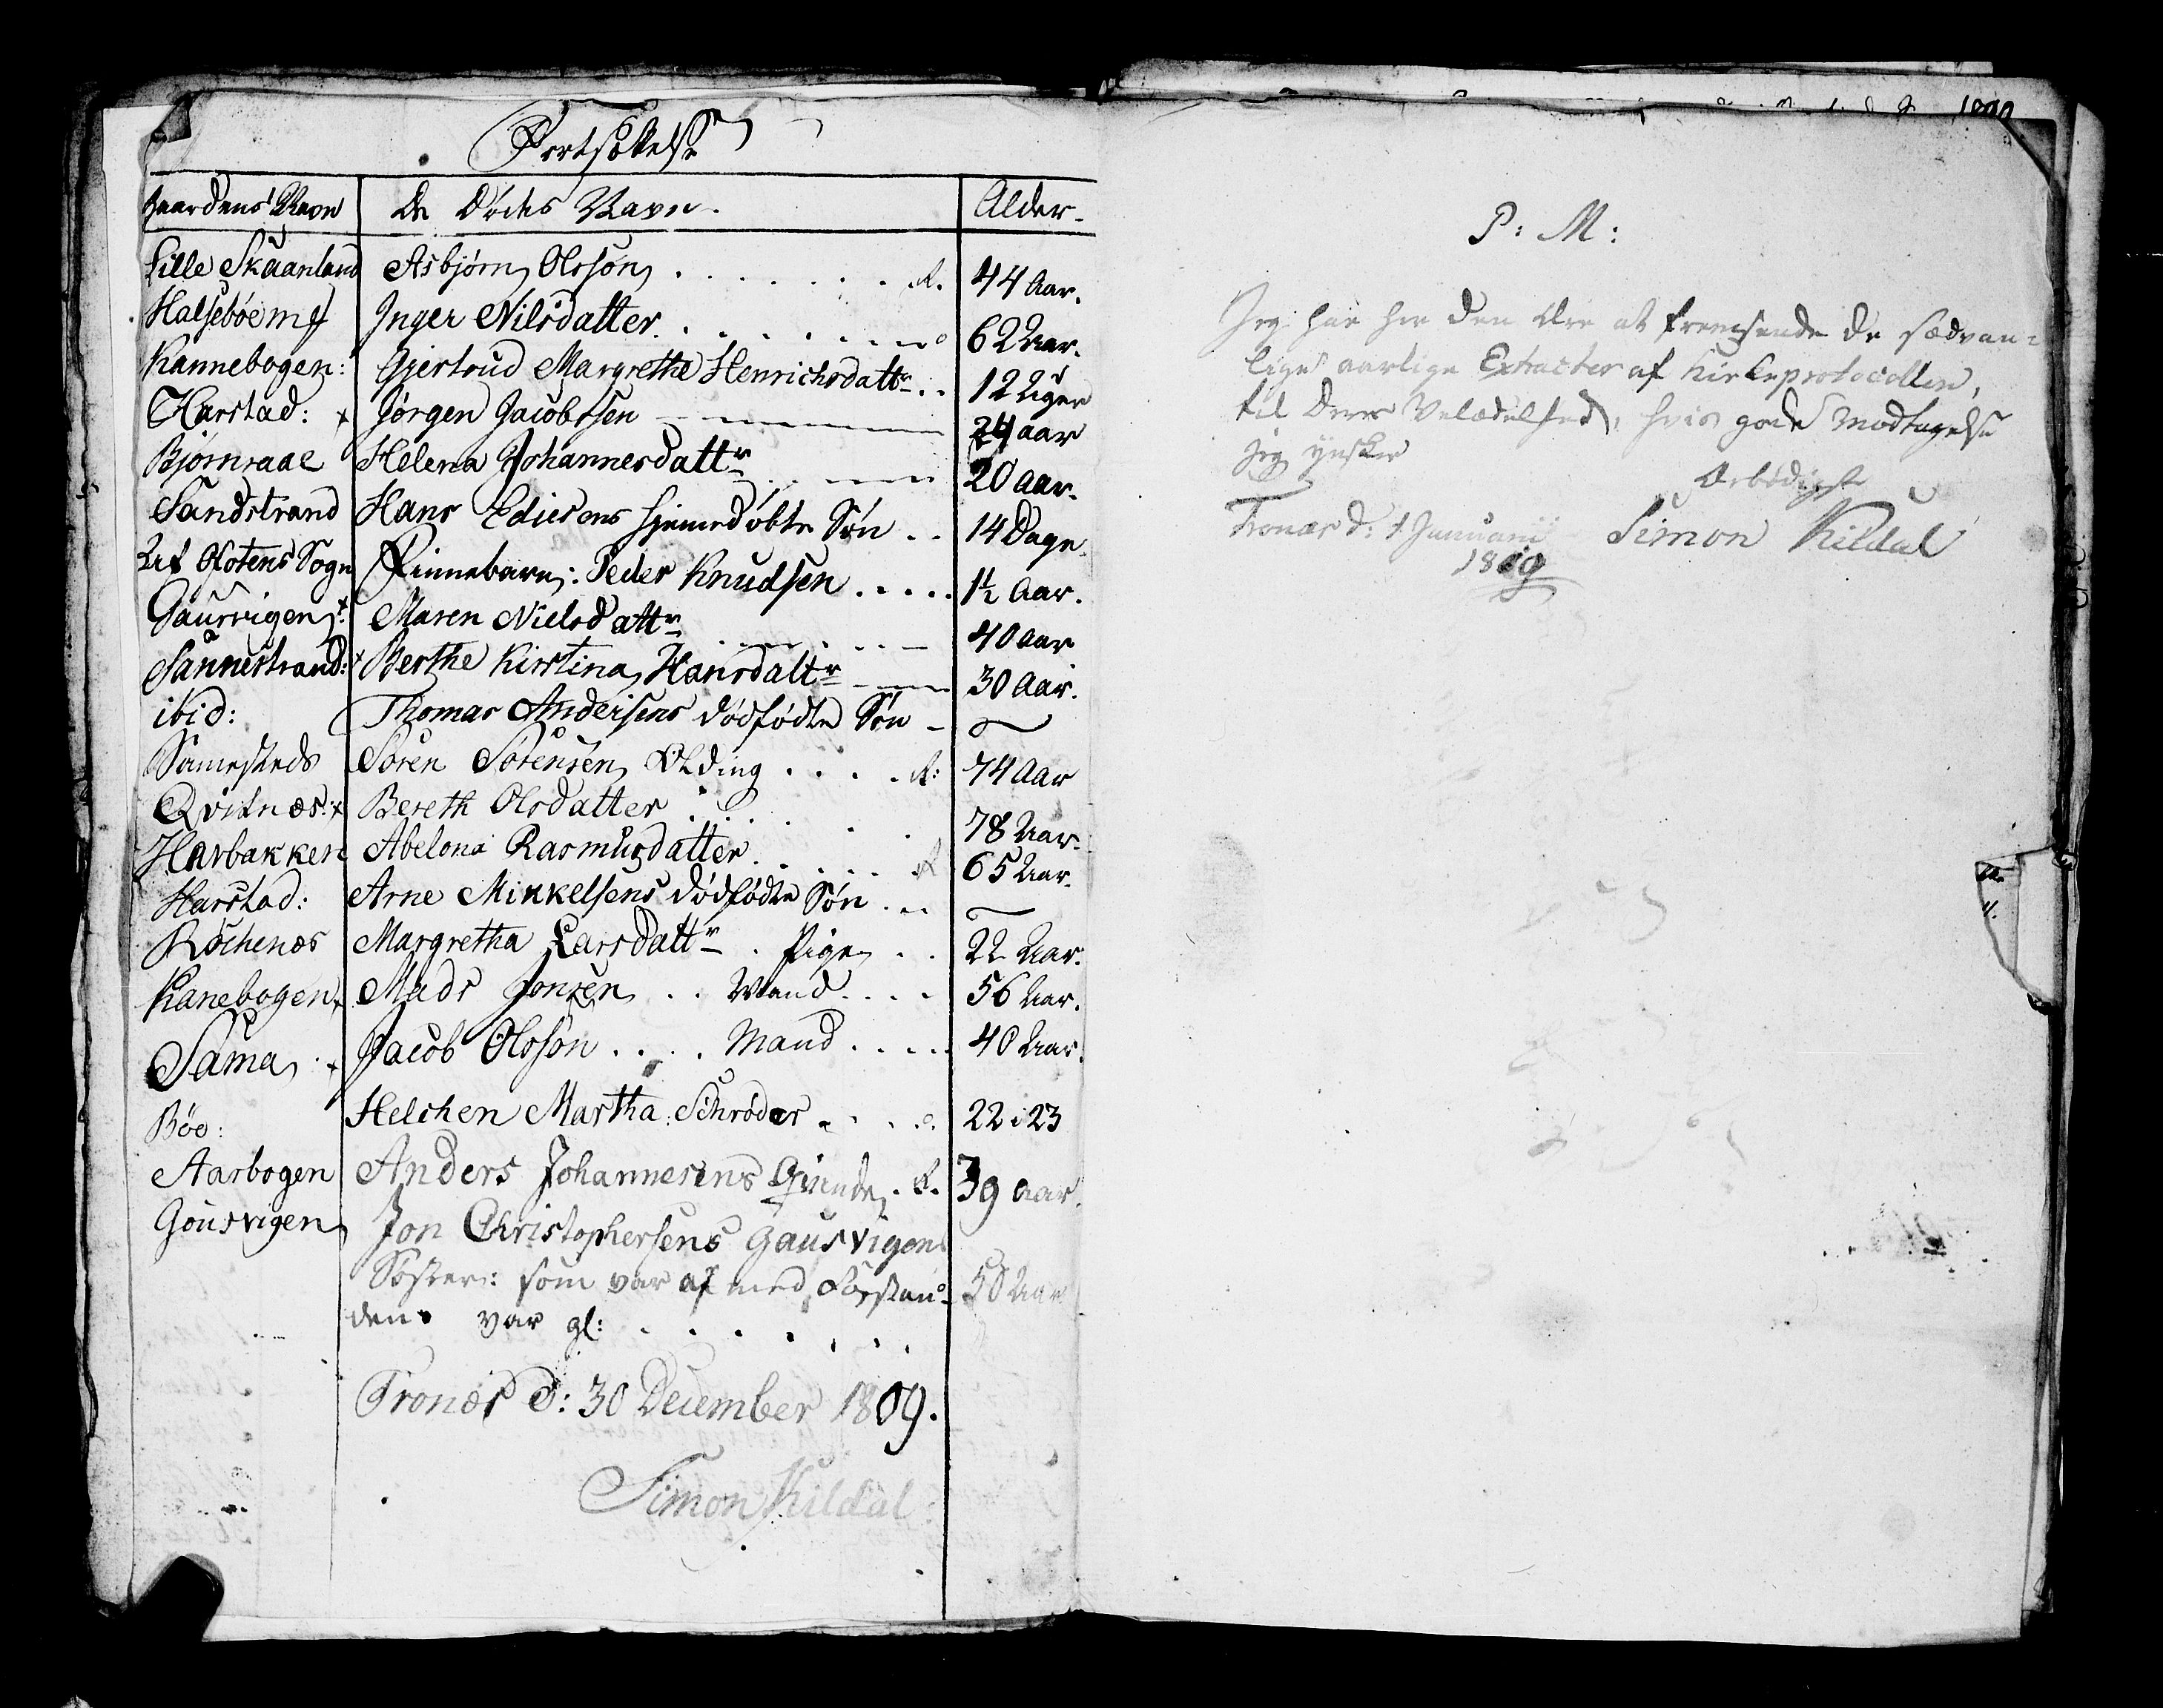 Fortsættelse
Gaardens Navn De Dødes Navn. Alder.
Lille Skaanland Asbjørn Olssøn . . . . . . . R. 44 Aar.
Halsebøe Inger Nilsdatter . . . . 62 Aar.
Kannebogen: Gjertrud Margrethe Henrichsdattr . . 12 Uger
Harstad: x Jørgen Jacobssen 24 aar
Bjørnraae Helena Johannesdattr 20 aar.
Sandstrand Hans Ediesens hjemedøbte Søn . . 14 Dage
Ofotens Sogn Finnebarn: Peder Knudsen . . . . . 1½ Aar.
Gausvigen x: Maren Nielsdattr 40 aar
Sannestrand: x Berthe Kirstina Hansdattr 30 Aar.
ibid: Thomas Andersens dødfødte Søn –
Sammesteds Søren Sørensen Olding . . . . R: 74 Aar
Qvitnæs: x Bereth Olsdatter . . . . . 78 Aar.
Harbakken Abelona Rasmusdatter . . . . . R 65 Aar.
Harstad: Arne Mikkelsens dødfødte Søn . . .
Røchenæs Margretha Larsdattr . Pige . . 22 Aar.
Kanebogen x Mads Jonsen . . Mand . . . . 56 Aar.
Sama x Jacob Olssøn . . . . Mand . . . . 40 Aar.
Bøe: Helchen Martha Schrøder . . . . 22 i 23
Aarbogen Anders Johannesens Qvinde . R. 39 aar.
Gousvigen Jon Christophersens Gausvigen
Søster: som var af med Forstan-
den var gl: . . . . . . . 50 Aar
Tronæs d: 30 December 1809.
Simon Kildal
P: M:
Jeg har her den Ære at fremsende de sædvan-
lige aarlige Extracter af Kirkeprotocollen,
til Deres Velædelhed, hvis gode Modtagelse
jeg ynsker
Ærbødigst
Tronæs d: 1 Januarii Simon Kildal
1809